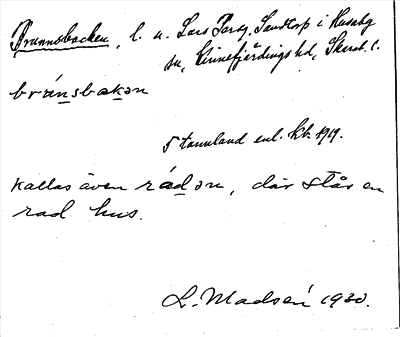 Brunnsbacken, l. u. Lars Pers g, Sandtorp i Husaby
sn, Kinnefjärdings hd, Skarab. l.
bránsbakən
5 tunnland enl. kb. 1919.
Kallas även rádən, där står en
rad hus.
L. Madsén 1930.